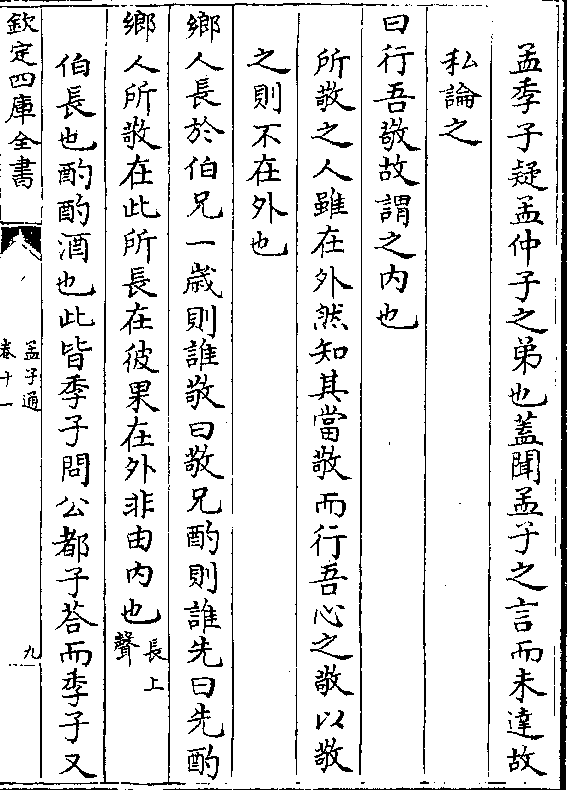 孟季子疑孟仲子之弟也蓋聞孟子之言而未達故
私論之
曰行吾敬故謂之内也
所敬之人雖在外然知其當敬而行吾心之敬以敬
之則不在外也
鄉人長於伯兄一歲則誰敬曰敬兄酌則誰先曰先酌
鄉人所敬在此所長在彼果在外非由内也
長上
聲
伯長也酌酌酒也此皆季子問公都子荅而季子又
欽定四庫全書
孟子通
卷十一
九